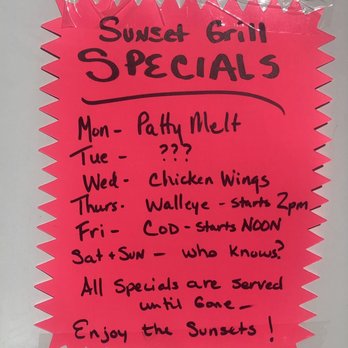 Sunset Grill
SPECIALS
Mon- Patty Melt
Tue - ???
Wed- Chicken Wings
Thurs- Walleye - starts 2pm
Fri- COD - starts NOON
Sat + SUN - who knows?
All Specials are served
until Gone -
Enjoy the Sunsets!